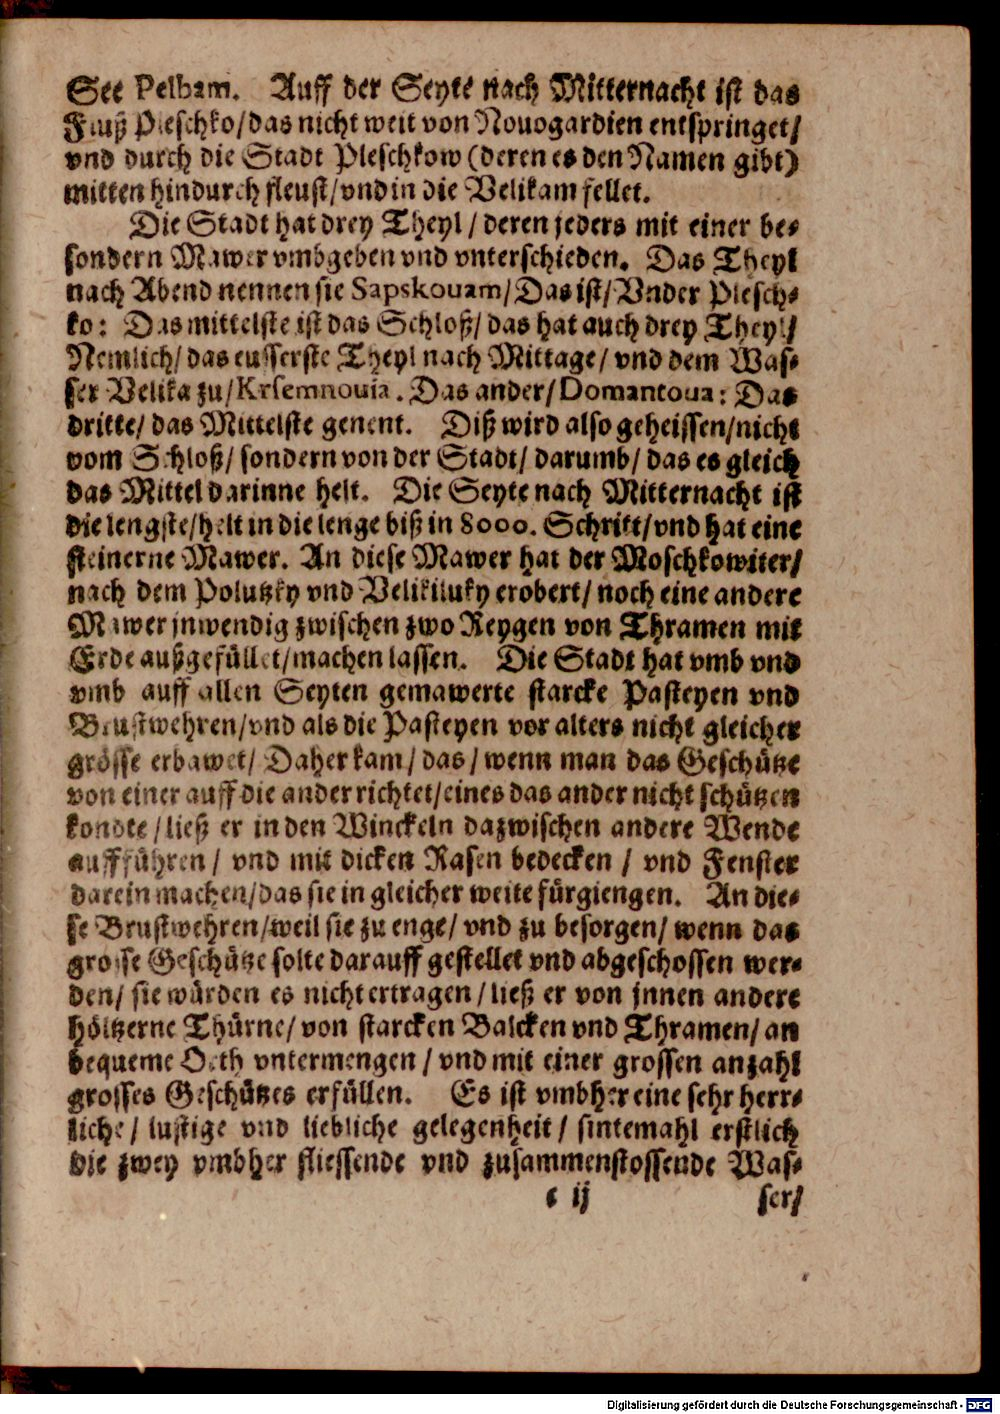 See Pelbam. Auff der Seyte nach Mitternacht ist das
Fluß Pleschko/das nicht weit von Nouogardien entspringet/
vnd durch die Stadt Pleschkow (deren es den Namen gibt)
mitten hindurch fleust/vnd in die Velikam fellet.
Die Stadt hat drey Theyl/ deren jeders mit einer be-
sondern Mawer vmbgeben vnd vnterschieden. Das Theyl
nach Abend nennen sie Sapskouam/ Das ist/ Vnder Plesch-
ko: Das mittelste ist das Schloß/ das hat auch drey Theyl/
Nemlich/ das eusserste Theyl nach Mittage/ vnd dem Was-
ser Velika zu/ Krsemnouia. Das ander/ Domantoua: Das
dritte/ das Mittelste genent. Diß wird also geheissen/nicht
vom Schloß/ sondern von der Stadt/ darumb/ das es gleich
das Mittel darinne helt. Die Seyte nach Mitternacht ist
die lengste/helt in die lenge biß in 8000. Schritt/vnd hat eine
steinerne Mawer. An diese Mawer hat der Moschkowiter/
nach dem Polutzky vnd Velikiluky erobert/ noch eine andere
Mawer jnwendig zwischen zwo Reygen von Thramen mit
Erde außgefüllet/machen lassen. Die Stadt hat vmb vnd
vmb auff allen Seyten gemawerte starcke Pasteyen vnd
Brustwehren/vnd als die Pasteyen vor alters nicht gleicher
grösse erbawet/ Daher kam/ das/ wenn man das Geschütze
von einer auff die ander richtet/eines das ander nicht schützen
kondte/ ließ er in den Winckeln dazwischen andere Wende
aufführen/ vnd mit dicken Rasen bedecken/ vnd Fenster
darein machen/das sie in gleicher weite fürgiengen. An die-
se Brustwehren/weil sie zu enge/ vnd zu besorgen/ wenn das
grosse Geschütze solte darauff gestellet vnd abgeschossen wer-
den/ sie würden es nicht ertragen/ ließ er von jnnen andere
höltzerne Thürne/ von starcken Balcken vnd Thramen/ an
bequeme Orth vntermengen/ vnd mit einer grossen anzahl
grosses Geschützes erfüllen. Es ist vmbher eine sehr herr-
liche/ lustige vnd liebliche gelegenheit/ sintemahl erstlich
die zwey vmbher fliessende vnd zusammenstossende Was-
c ij ser/
Digitalisierung gefördert durch die Deutsche Forschungsgemeinschaft - DFG